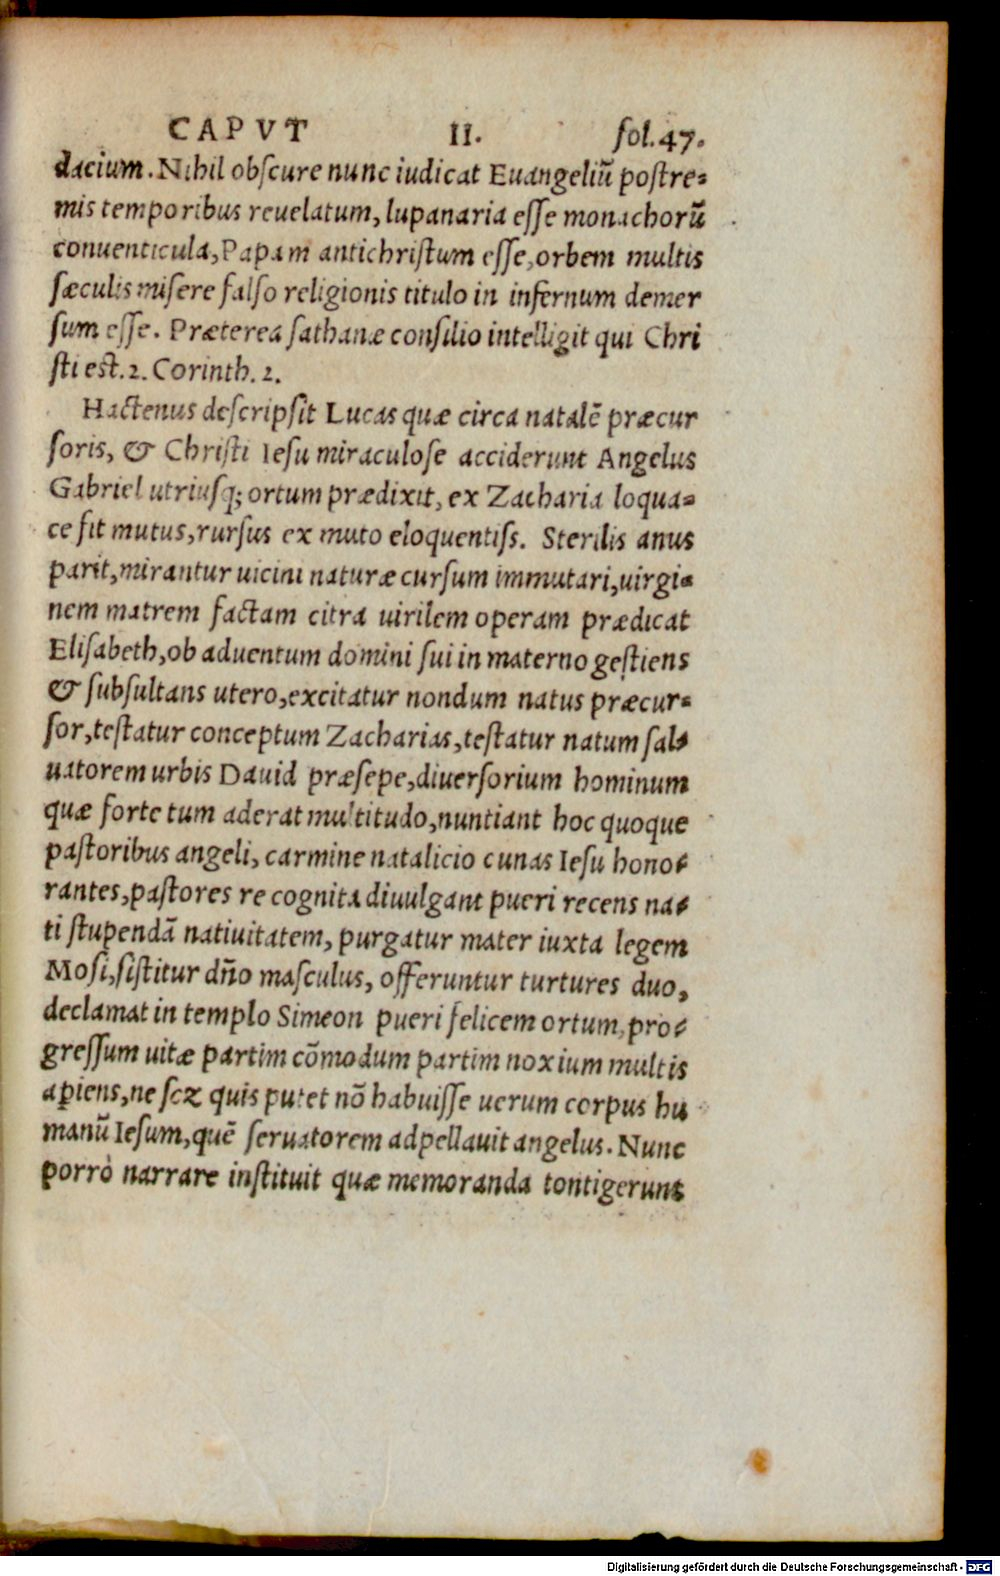 CAPVT II. fol. 47.
dacium. Nihil obscure nunc iudicat Euangeliũ postre-
mis temporibus reuelatum, lupanaria esse monachorũ
conuenticula, Papam antichristum esse, orbem multis
sæculis misere falso religionis titulo in infernum demer
sum esse. Præterea sathanæ consilio intelligit qui Chri
sti est. 2. Corinth. 2.
Hactenus descripsit Lucas quæ circa natalẽ præcur
soris, & Christi Iesu miraculose acciderunt Angelus
Gabriel utriusq; ortum prædixit, ex Zacharia loqua-
ce fit mutus, rursus ex muto eloquentiss. Sterilis anus
parit, mirantur uicini naturæ cursum immutari, uirgi-
nem matrem factam citra uirilem operam prædicat
Elisabeth, ob aduentum domini sui in materno gestiens
& subsultans utero, excitatur nondum natus præcur-
sor, testatur conceptum Zacharias, testatur natum sal-
uatorem urbis Dauid præsepe, diuersorium hominum
quæ forte tum aderat multitudo, nuntiant hoc quoque
pastoribus angeli, carmine natalicio cunas Iesu hono-
rantes, pastores re cognita diuulgant pueri recens na-
ti stupendã natiuitatem, purgatur mater iuxta legem
Mosi, sistitur dño masculus, offeruntur turtures duo,
declamat in templo Simeon pueri felicem ortum, pro-
gressum uitæ partim cõmodum partim noxium multis
aꝑiens, ne scz quis putet nõ habuisse uerum corpus hu
manũ Iesum, quẽ seruatorem adpellauit angelus. Nunc
porrò narrare instituit quæ memoranda contigerunt
Digitalisierung gefördert durch die Deutsche Forschungsgemeinschaft - DFG